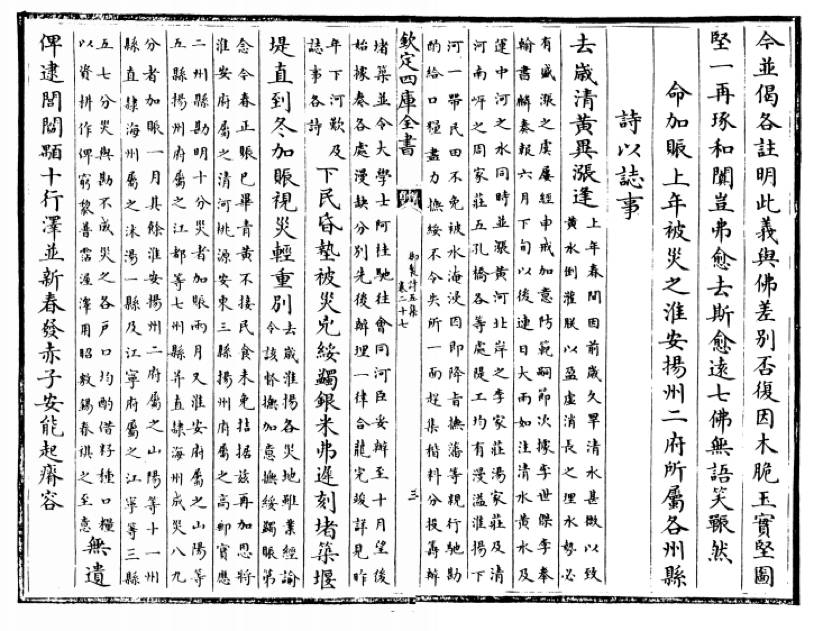 今並偈各註明此義與佛差別否復因木脆玉實堅圖
堅一再琢和闐豈弗愈去斯愈遠七佛無語笑囅然
命加賑上年被災之淮安揚州二府所屬各州縣
詩以誌事
去歲清黃異漲逢
上年春間因前歲久旱清水甚微以致
黃水倒灌朕以盈虛消長之理水勢必
有盛漲之虞屢經申戒加意防範嗣節次據李世傑李奉
翰書麟奏報六月下旬以後連日大雨如注清水黃水及
運中河之水同時並漲黃河北岸之李家莊湯家莊及清
河南岸之周家莊五孔橋各等處隄工均有漫溢淮揚下
河一帶民田不免被水淹浸因即降旨撫藩等親行馳勘
酌給口糧盡力撫綏不令失所一面趕集楷料分投籌辦
欽定四庫全書
御製詩五集
卷二十七
三
堵築並令大學士阿桂馳往會同河臣妥辦至十月望後
始據奏各處漫缺分別先後辦理一律合龍完竣詳見昨
年下河歎及
誌事各詩
下民昏墊被災兇綏蠲銀米弗遲刻堵築堰
堤直到冬加賑視災輕重別
去歲淮揚各災地雖業經諭
令該督撫加意撫綏蠲賑第
念今春正賑已畢青黃不接民食未免拮据茲再加恩將
淮安府屬之清河桃源安東三縣揚州府屬之高郵寶應
二州縣勘明十分災者加賑兩月又淮安府屬之山陽等
五縣揚州府屬之江都等七州縣并直隸海州成災八九
分者加賑一月其餘淮安揚州二府屬之山陽等十一州
縣直隸海州屬之沭陽一縣及江寧府屬之江寧等三縣
五七分災與勘不成災之各戶口均酌借籽種口糧
以資耕作俾窮黎普霑渥澤用昭敉錫春祺之至意
無遺
俾逮閭閻顒十行澤並新春發赤子安能起瘠容